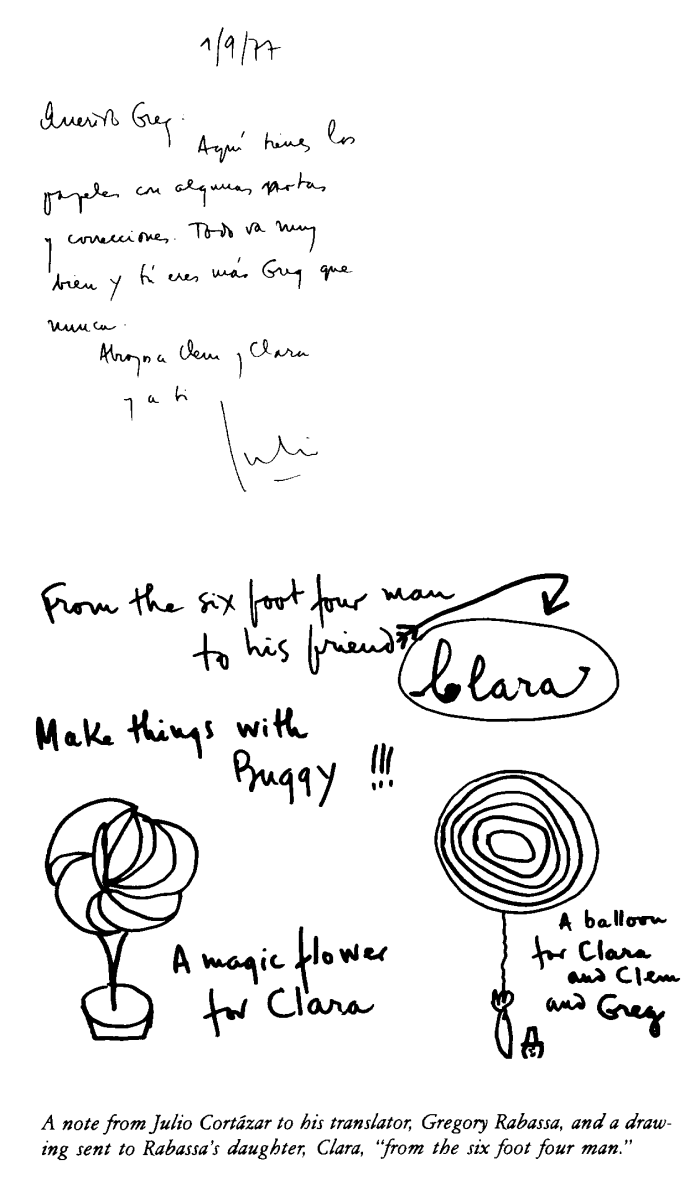 1/9/77
Querido Greg.
Aquí tienes los
papeles con algunas notas
y correcciones. Todo va muy
bien y tú eres más Greg que
nunca.
Abrazos a Clem y Clara
y a ti
Julio
From the six foot four man
to his friend
Clara
Make things with
Buggy !!!
A magic flower
for Clara
A balloon
for Clara
and Clem
and Greg
A note from Julio Cortázar to his translator, Gregory Rabassa, and a draw-
ing sent to Rabassa's daughter, Clara, "from the six foot four man."